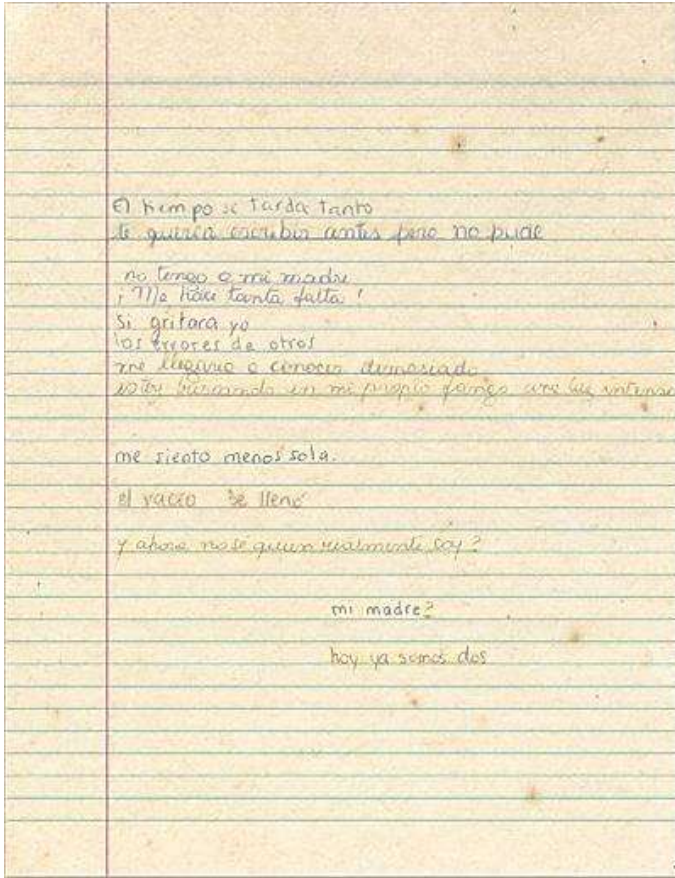 El tiempo se tarda tanto
te quería escribir antes pero no pude
no tengo a mi madre
¡Me hace tanta falta!
Si gritara yo
los errores de otros
me llegaría a conocer demasiado
estoy buscando en mi propio fango una luz intensa
me siento menos sola.
el vacío se llenó
y ahora no sé quien realmente soy?
mi madre?
hoy ya somos dos